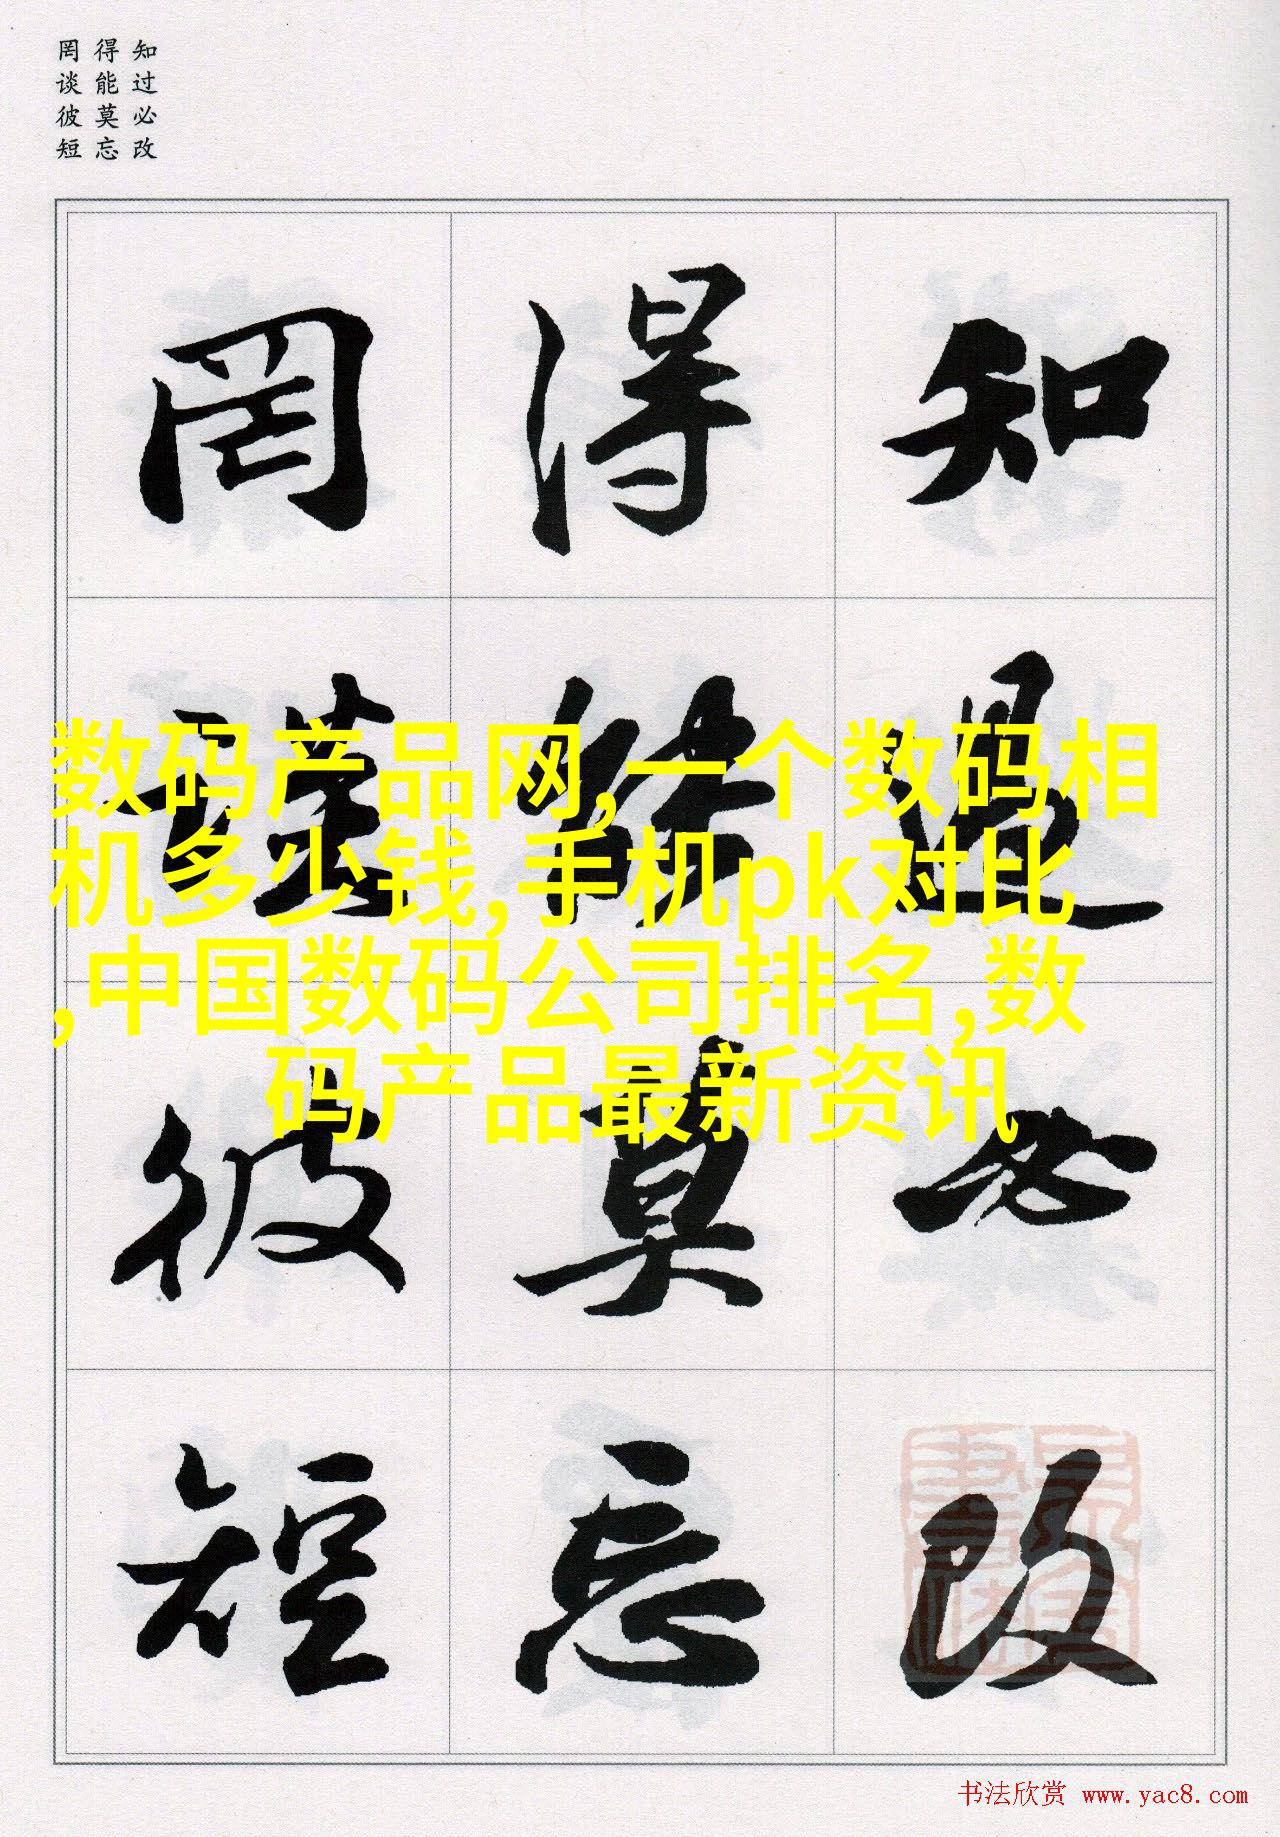 知过必改
得能莫忘
罔谈彼短
知過必改
得能莫忘
罔談彼短
数码产品网,一个数码相
机多少钱,手机pk对比
,中国数码公司排名,数
码产品最新资讯
书法欣赏 www.yac8.com